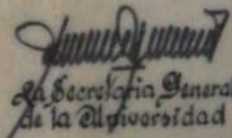 La Secretaria General
de la Universidad